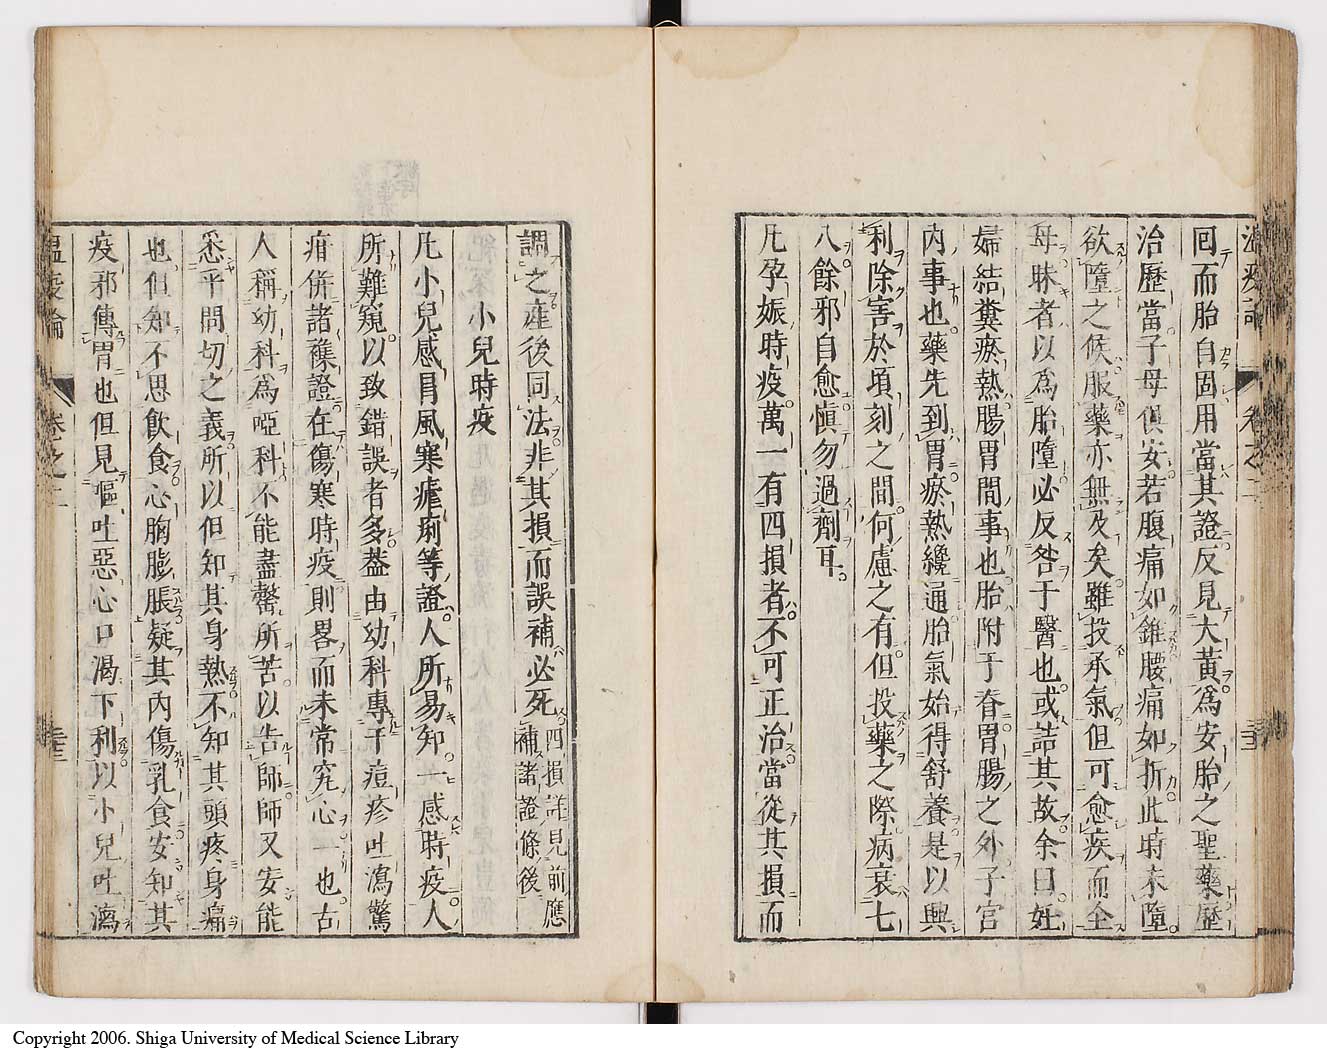 回而胎自固用當其證反見大黃爲安胎之聖藥歷
治歷當子母俱安若腹痛如錐腰痛如折此時未墮
欲墮之候服藥亦無及矣雖投承氣但可愈疾而全
母昧者以爲胎墮必反咎于醫也或詰其故余曰妊
婦結糞瘀熱腸胃間事也胎附于脊胃腸之外子宮
內事也藥先到胃瘀熱纔通胎氣始得舒養是以興
利除害於頃刻之間何慮之有但投藥之際病衰七
八餘邪自愈愼勿過劑耳
凡孕娠時疫萬一有四損者不可正治當從其損而
調之產後同法非其損而誤補必死四損詳見前應補諸證條後
小兒時疫
凡小兒感冒風寒瘧痢等證人所易知一感時疫人
所難窺以致錯誤者多葢由幼科專于痘疹吐瀉驚
疳併諸雜證在傷寒時疫則畧而未常究心一也古
人稱幼科爲啞科不能盡罄所苦以告師師又安能
悉乎問切之義所以但知其身熱不知其頭疼身痛
也但知不思飲食心胸膨脹疑其內傷乳食安知其
疫邪傳胃也但見嘔吐惡心口渴下利以小兒吐瀉
溫疫論 卷之二
Copyright 2006. Shiga University of Medical Science Library